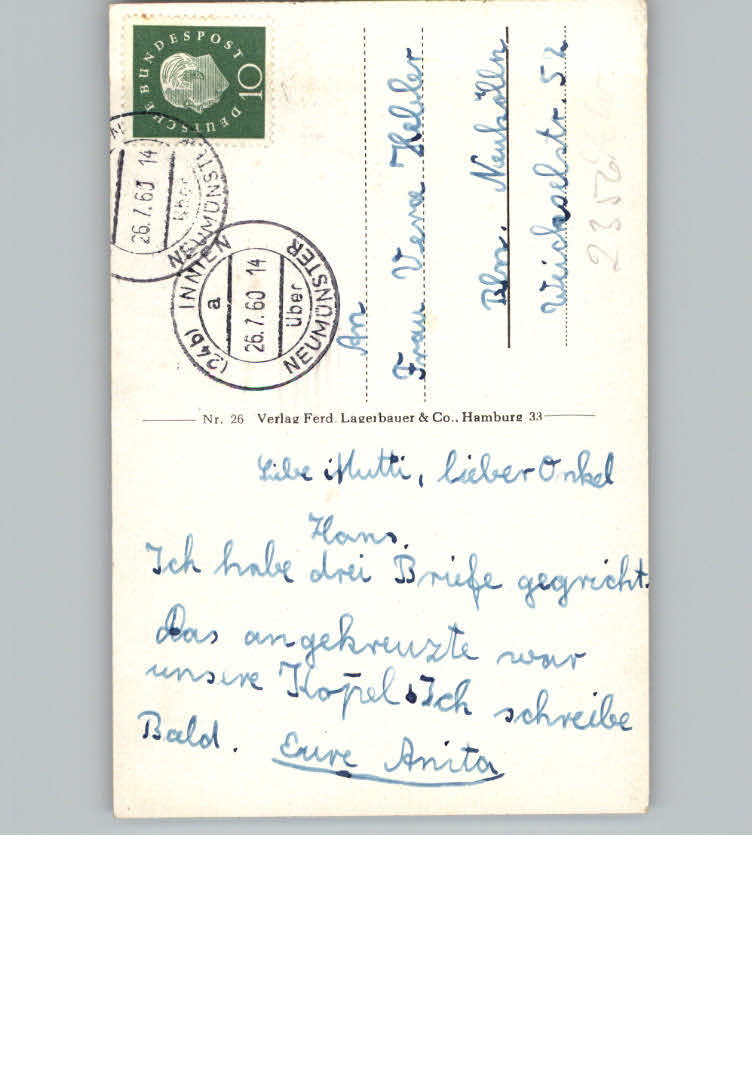 DEUTSCHE BUNDESPOST
10
26.7.60 14
über
NEUMÜNSTER
(24b) INNIEN
a
26.7.60 14
über
NEUMÜNSTER
An
Frau Vera
Bln. Neukölln
Weichselstr. 52
2356
Nr. 26 Verlag Ferd. Lagerbauer & Co., Hamburg 33
Liebe Mutti, lieber Onkel
Hans.
Ich habe drei Briefe gegricht.
Das angekreuzte war
unsere Kopel. Ich schreibe
Bald. Eure Anita